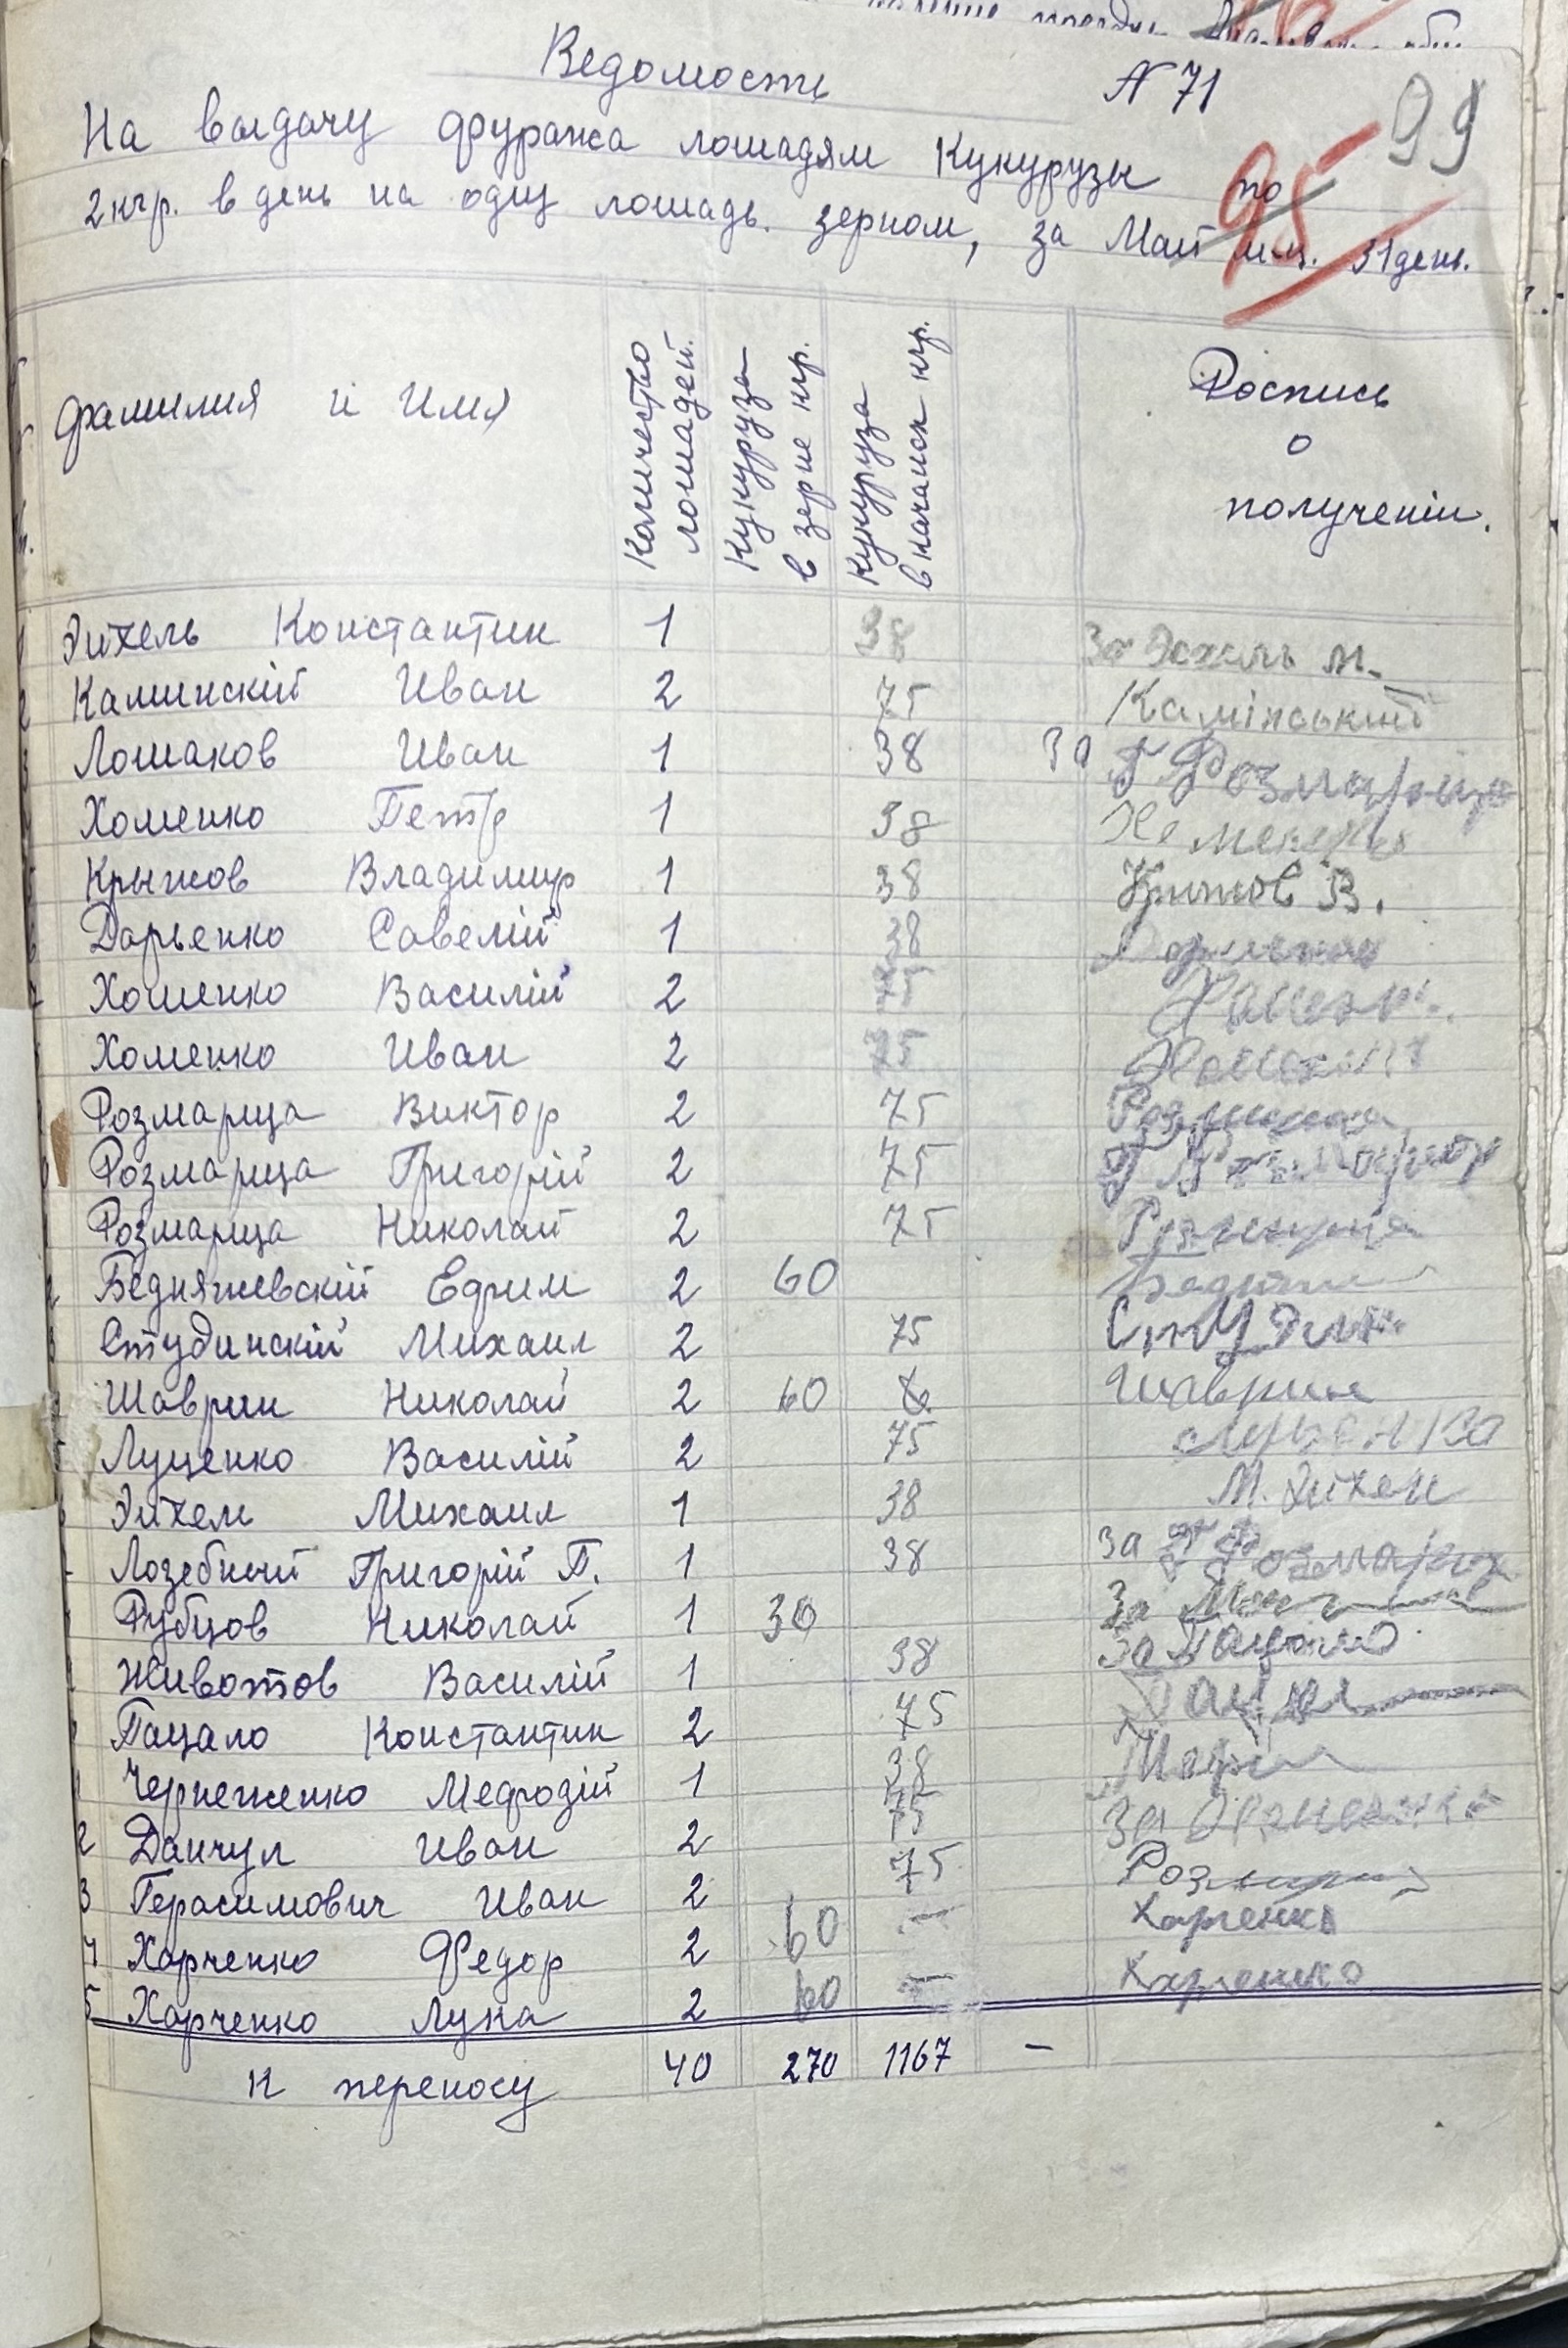 Ведомость N 71
99
95
На выдачу фуража лошадям Кукурузы по
2 кгр. в день на одну лошадь. зерном, за Май м-ц. 31 день.
Фамилия и Имя
Количество лошадей.
Кукуруза в зерне кгр.
Кукуруза в качанах кгр.
Роспись о полученіи.
Эйхель Константин 1 38 За м.
Каминскій Иван 2 75 Камінський
Лошаков Иван 1 38 За Г Розмарица
Хоменко Петр 1 38
Крыжов Владимир 1 38 Крижов В.
Дарьенко Савелій 1 38
Хоменко Василій 2 75
Хоменко Иван 2 75
Розмарица Виктор 2 75
Розмарица Григорій 2 75 Г Розмарица
Розмарица Николай 2 75
Бедняжевскій Ефим 2 60
Студинскій Михаил 2 75
Шаврин Николай 2 60 Шаврин
Луценко Василій 2 75
Эйхель Михаил 1 38 М. Эйхель
Лозебный Григорій П. 1 38 За Г Розмариц
Рубцов Николай 1 30 За
Животов Василій 1 38 За Пацало
Пацало Константин 2 75
Черненженко Мефодій 1 38
2 Данчул Иван 2 75 За
3 Герасимович Иван 2 75
4 Харченко Федор 2 60 Харченко
5 Харченко Лука 2 60 Харченко
К переносу 40 270 1167 -